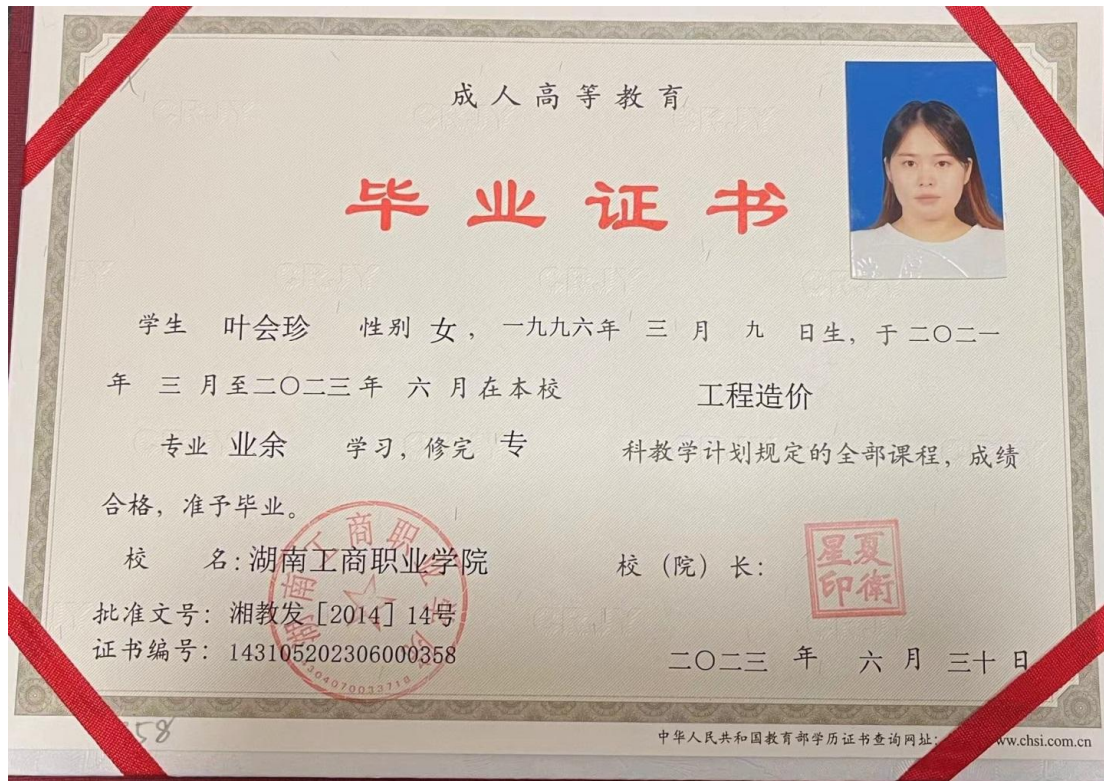 成人高等教育
毕业证书
学生 叶会珍 性别 女，一九九六年 三 月 九 日生，于二〇二一
年 三 月至二〇二三年 六 月在本校 工程造价
专业 业余 学习，修完 专 科教学计划规定的全部课程，成绩
合格，准予毕业。
校 名：湖南工商职业学院
校（院）长：
星夏
印衛
批准文号：湘教发［2014］14号
证书编号：143105202306000358
二〇二三 年 六 月 三十 日
湖南工商职业学院
4304070033718
58
中华人民共和国教育部学历证书查询网址：
ww.chsi.com.cn
CRJY